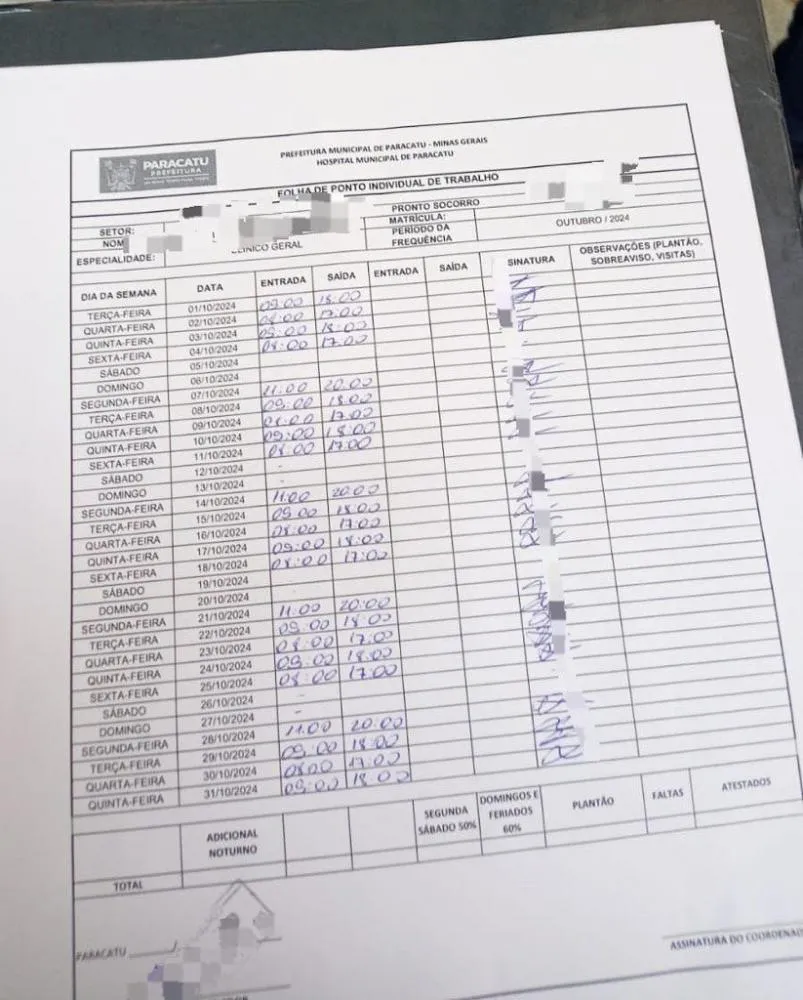 PARACATU
PREFEITURA
PREFEITURA MUNICIPAL DE PARACATU - MINAS GERAIS
HOSPITAL MUNICIPAL DE PARACATU
FOLHA DE PONTO INDIVIDUAL DE TRABALHO
SETOR: PRONTO SOCORRO
NOM MATRÍCULA:
ESPECIALIDADE: CLÍNICO GERAL PERÍODO DA FREQUÊNCIA OUTUBRO / 2024
DIA DA SEMANA DATA ENTRADA SAÍDA ENTRADA SAÍDA SINATURA OBSERVAÇÕES (PLANTÃO, SOBREAVISO, VISITAS)
TERÇA-FEIRA 01/10/2024 09:00 18:00
QUARTA-FEIRA 02/10/2024 08:00 17:00
QUINTA-FEIRA 03/10/2024 09:00 18:00
SEXTA-FEIRA 04/10/2024 08:00 17:00
SÁBADO 05/10/2024
DOMINGO 06/10/2024
SEGUNDA-FEIRA 07/10/2024 11:00 20:00
TERÇA-FEIRA 08/10/2024 09:00 18:00
QUARTA-FEIRA 09/10/2024 08:00 17:00
QUINTA-FEIRA 10/10/2024 09:00 18:00
SEXTA-FEIRA 11/10/2024 08:00 17:00
SÁBADO 12/10/2024 -
DOMINGO 13/10/2024 -
SEGUNDA-FEIRA 14/10/2024 11:00 20:00
TERÇA-FEIRA 15/10/2024 09:00 18:00
QUARTA-FEIRA 16/10/2024 08:00 17:00
QUINTA-FEIRA 17/10/2024 09:00 18:00
SEXTA-FEIRA 18/10/2024 08:00 17:00
SÁBADO 19/10/2024
DOMINGO 20/10/2024
SEGUNDA-FEIRA 21/10/2024 11:00 20:00
TERÇA-FEIRA 22/10/2024 09:00 18:00
QUARTA-FEIRA 23/10/2024 08:00 17:00
QUINTA-FEIRA 24/10/2024 09:00 18:00
SEXTA-FEIRA 25/10/2024 08:00 17:00
SÁBADO 26/10/2024 -
DOMINGO 27/10/2024 -
SEGUNDA-FEIRA 28/10/2024 11:00 20:00
TERÇA-FEIRA 29/10/2024 09:00 18:00
QUARTA-FEIRA 30/10/2024 08:00 17:00
QUINTA-FEIRA 31/10/2024 09:00 18:00
ADICIONAL NOTURNO SEGUNDA SÁBADO 50% DOMINGOS E FERIADOS 60% PLANTÃO FALTAS ATESTADOS
TOTAL
PARACATU ______/
ASSINATURA DO COORDENA